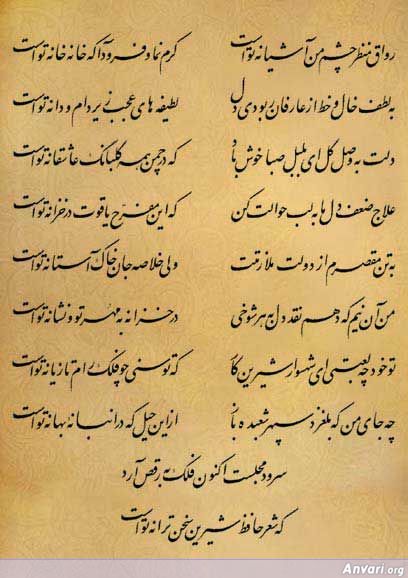 رواق منظر چشم من آشیانه توست کرم نما و فرود آ که خانه خانه توست
به لطف خال و خط از عارفان ربودی دل لطیفه های عجب زیر دام و دانه توست
دلت به وصل گل ای بلبل صبا خوش باد که در چمن همه گلبانگ عاشقانه توست
علاج ضعف دل ما به لب حوالت کن که این مفرح یاقوت در خزانه توست
به تن مقصرم از دولت ملازمتت ولی خلاصه جان خاک آستانه توست
من آن نیم که دهم نقد دل به هر شوخی در خزانه به مهر تو و نشانه توست
تو خود چه لعبتی ای شهسوار شیرین کار که توسنی چو فلک رام تازیانه توست
چه جای من که بلغزد سپهر شعبده باز از این حیل که در انبانه بهانه توست
سرود مجلست اکنون فلک به رقص آرد
که شعر حافظ شیرین سخن ترانه توست
Anvari.org